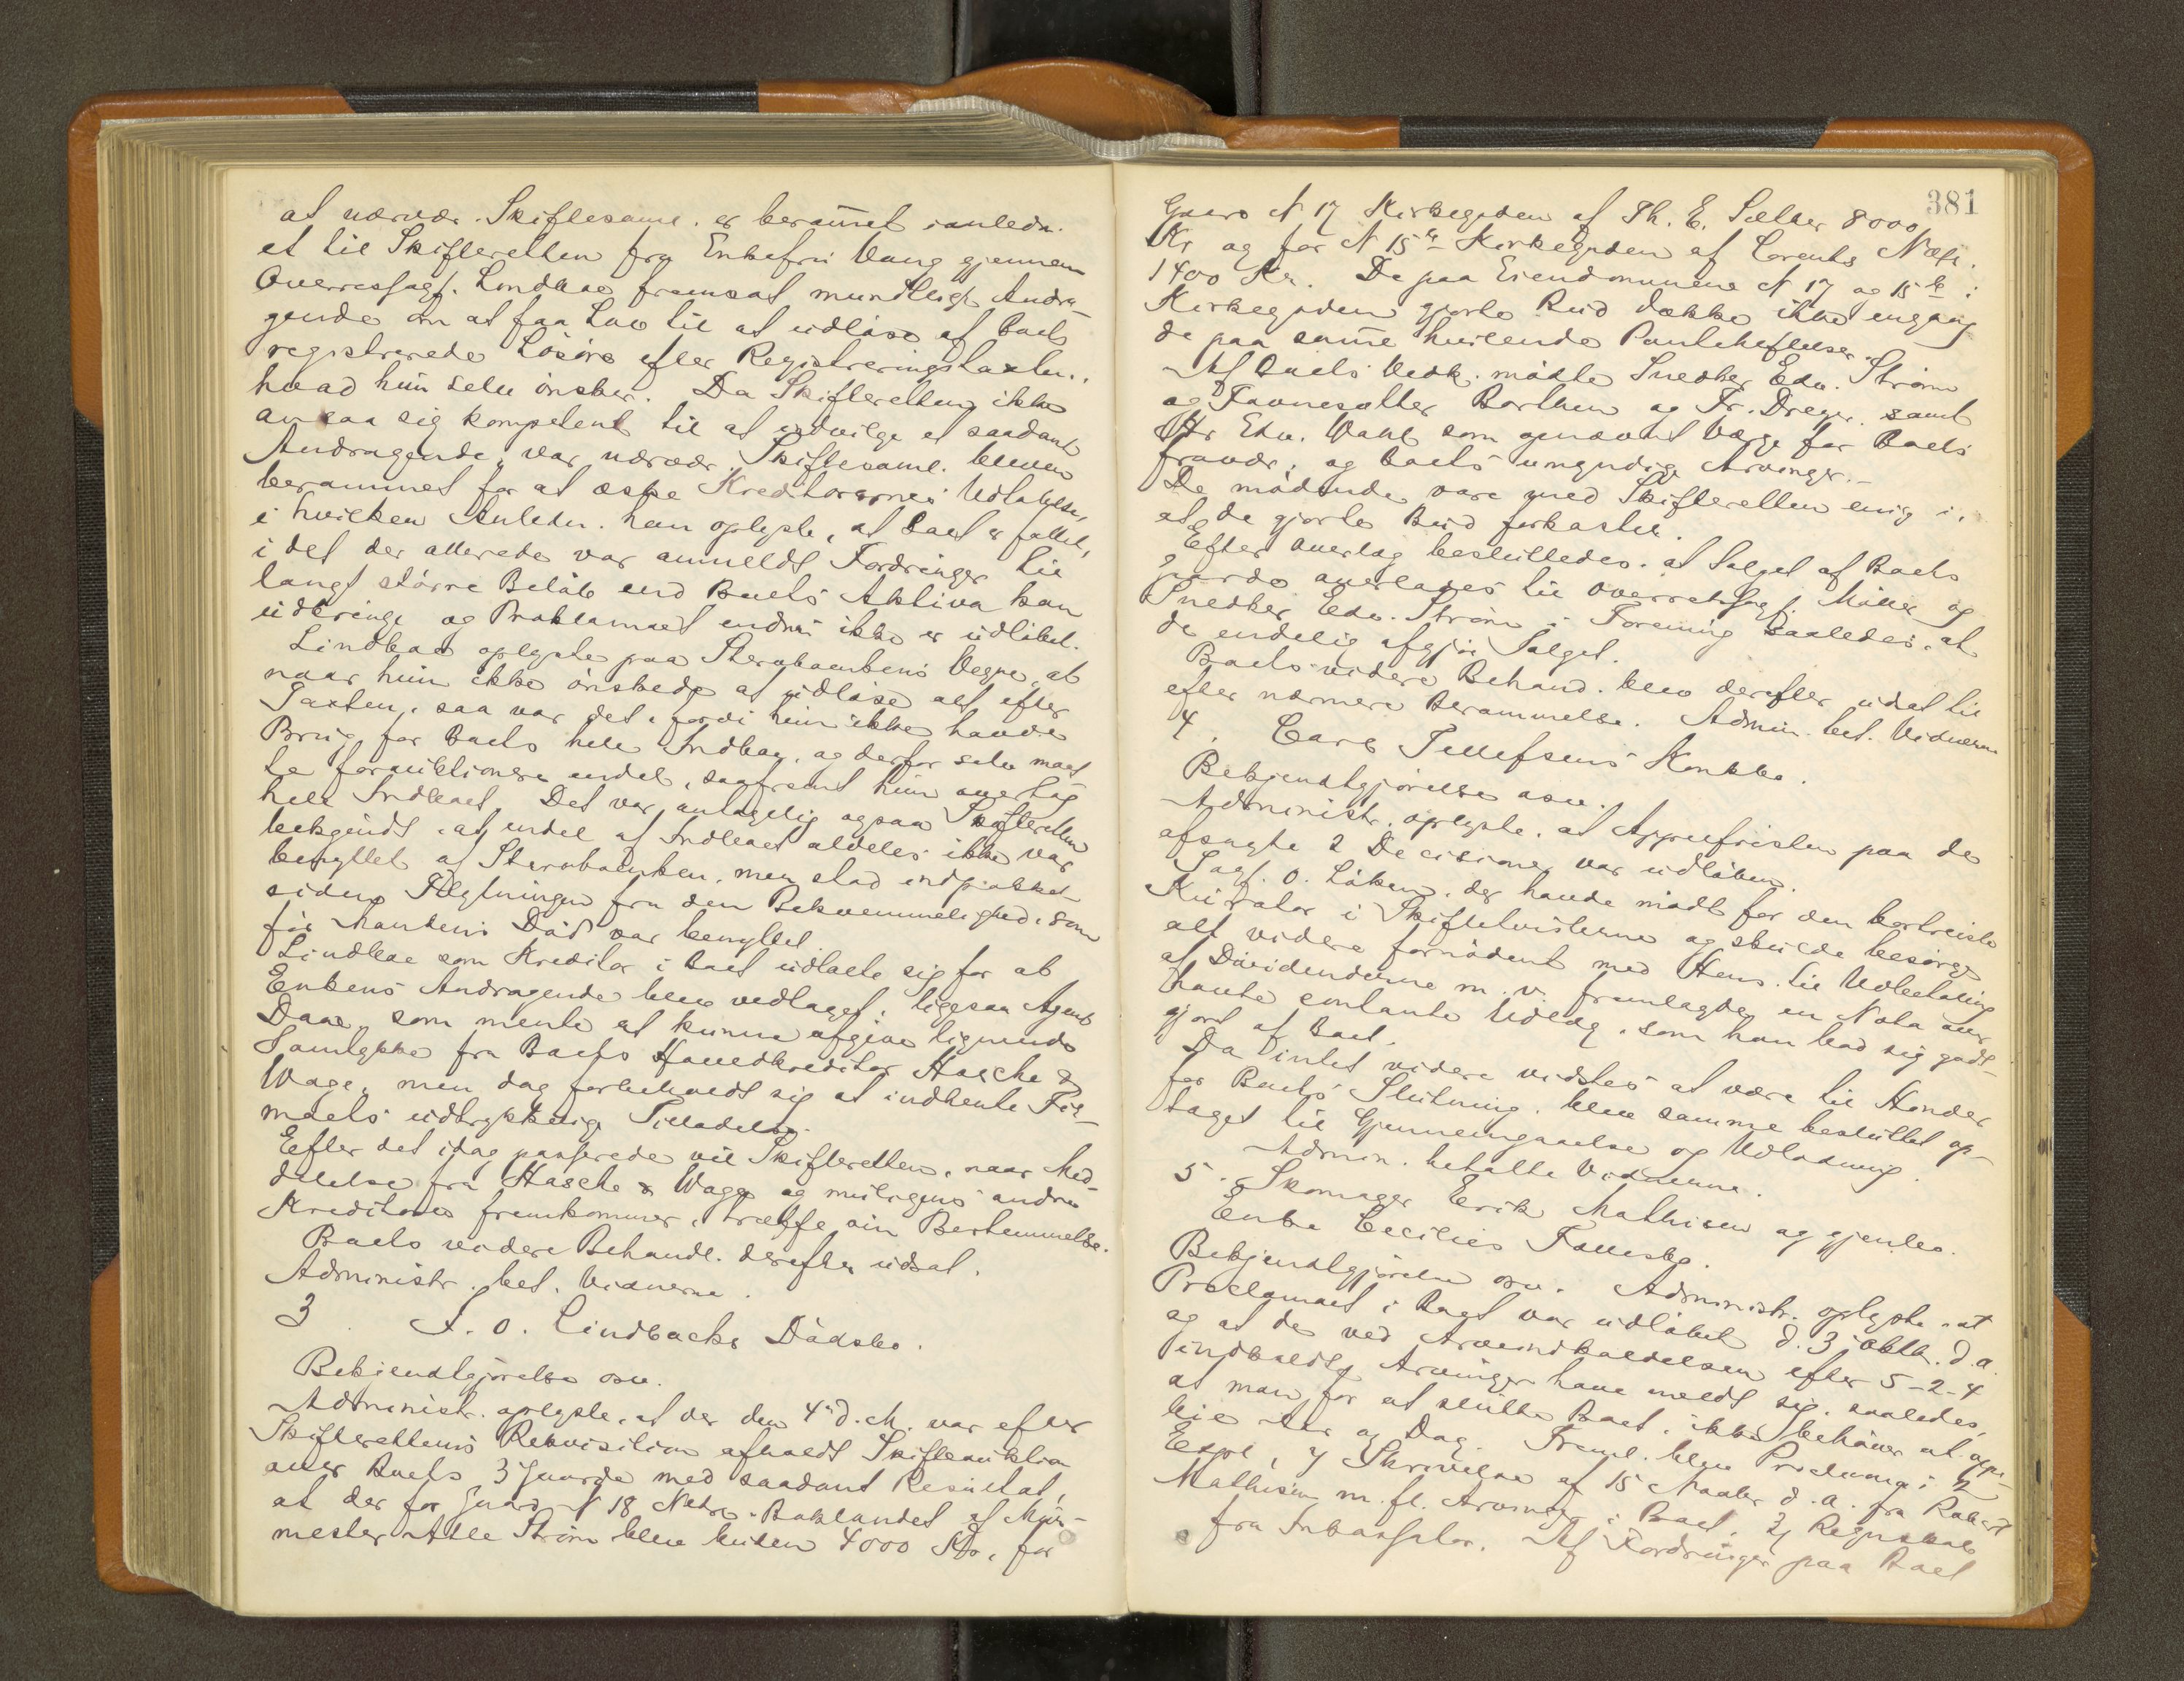 at nærvær. Skiftesaml. er berammet i anledn.
et til Skifteretten fra Enkefru Vang gjennem
Overretssagf. Lindboe fremsat mundtligt Andra-
gende om at faa Lov til at udløse af Boets
registrerede Løsøre efter Registreringstaxten,
hvad hun selv ønsker. Da Skifteretten ikke
ansaa sig kompetent til at indvilge et saadant
Andragende, var nærvær. Skiftesaml. bleven
berammet for at æske Kreditorernes Udtalelse,
i hvilken Anledn. han oplyste, at Boet er fallit,
idet der allerede var anmeldt Fordringer til
langt større Beløb end Boets Aktiva kan
udbringe og Proklamaet endnu ikke er udløbet.
Lindboe oplyste paa Stervboenkens Vegne, at
naar hun ikke ønskede at udløse alt efter
Taxten, saa var det, fordi hun ikke havde
Brug for Boets hele Indbo, og derfor selv maat-
te forauktionere endel, saafremt hun overtog
hele Indboet. Det var antagelig ogsaa Skifteretten
bekjendt, at endel af Indboet aldeles ikke var
benyttet af Stervboenken, men stod indpakket
siden Flytningen fra den Bekvemmelighed, som
før Mandens Død var benyttet.
Lindboe som Kreditor i Boet udtalte sig for at
Enkens Andragende blev vedtaget, ligesaa Agent
Daae, som mente at kunne afgive lignende
Samtykke fra Boets Hovedkreditor Hasche &
Wage, men dog forbeholdt sig at indhente Fir-
maets udtrykkelige Tilladelse.
Efter det idag passerede vil Skifteretten, naar Med-
delelse fra Hasche & Wage og muligens andre
Kreditorer fremkommer, træffe sin Bestemmelse.
Boets videre Behandl. derefter udsat.
Administr. bet. Vidnerne.
3. J. O. Lindbacks Dødsbo.
Bekjendtgjørelse osv.
Administr. oplyste, at der den 4de d. M. var efter
Skifterettens Rekvisition afholdt Skifteauktion
over Boets 3 Gaarde med saadant Resultat,
at der for Gaard N 18 Nedre Baklandet af Mur-
mester Atle Strøm blev buden 4000 Kr, for
381
Gaard N 17 Kirkegaden af Th. E. Sæther 8000
Kr og for N 15b Kirkegaden af Lorents Næss.
1400 Kr. De paa Eiendommene N 17 og 15b i
Kirkegaden gjorte Bud dække ikke engang
de paa samme hvilende Pantehæftelser.
Af Boets Vedk. mødte Snedker Edv. Strøm
og Favnesætter Barthen og Fr. Dreyer samt
Hr Edv. Wahl som opnævnt Værge for Boets
fravær. og Boets umyndige Arvinger.
De mødende vare med Skifteretten enig i,
at de gjorte Bud forkastes.
Efter Overlæg besluttedes, at Salget af Boets
gaarde overlades til Overretssagf. Møller og
Snedker Edv. Strøm i Forening saaledes, at
de endelig afgjør Salget.
Boets videre Behand. blev derefter udsat til
efter nærmere Berammelse. Admin. bet. Vidnerne
4. Carl Tellefsens Konkbo.
Bekjendtgjørelse osv.
Administr. oplyste, at Appelfristen paa de
afsagte 2 Decisioner var udløben.
Sagf. O. Løken, der havde mødt for den bortreiste
Kurator i Skiftetvisterne og skulde besørge
alt videre fornødent med Hens. til Udbetaling
af Dividenderne m. v. fremlagde en Nota over
havte contante Udlæg, som han bad sig godt-
gjort af Boet.
Da intet videre vidstes at være til Hinder
for Boets Slutning, blev samme besluttet op-
taget til Gjennemgaaelse og Udlodning.
Admin. betalte Vidnerne.
5. Skomager Erik Mathisen og gjenlev.
Enke Cecilies Fællesbo.
Bekjendtgjørelse osv. Administr. oplyste, at
Proclamaet i Boet var udløbet d. 3 Oktbr. d. a.
og at de ved Arveindkaldelsen efter 5-2-4
indkaldte Arvinger have meldt sig, saaledes,
at man for at slutte Boet, ikke behøver at opp-
bie Aar og Dag. Freml. blev Proclama i 2
Expl, 1/ Skrivelse af 15 Marts d. a. fra Robert
Mathisen m. fl. Arvinger i Boet, 2/ Regnskab
fra Inkassator. Af Fordringer paa Boet